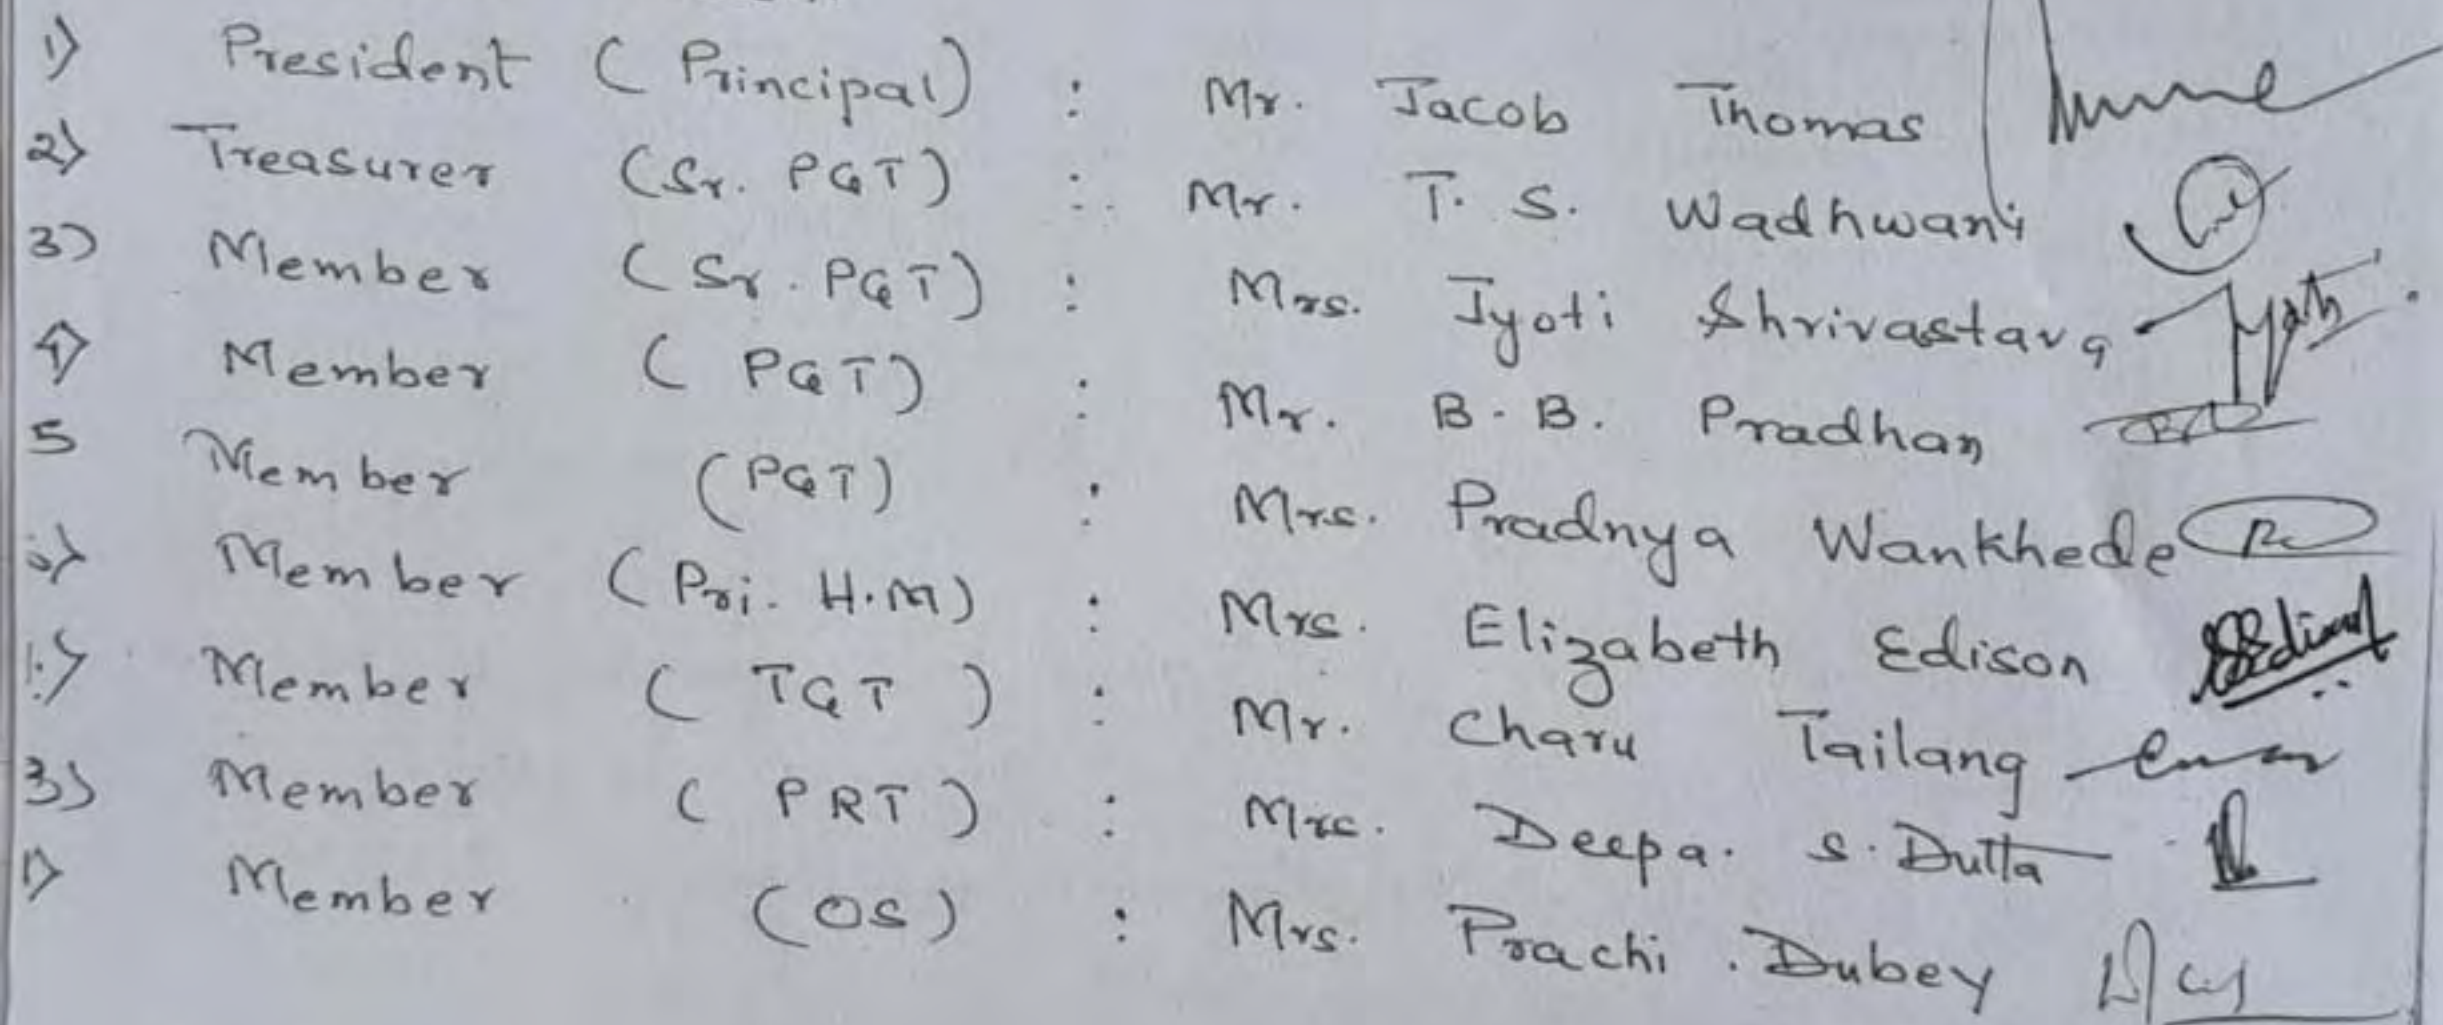 1) President (Principal) : Mr. Jacob Thomas
2) Treasurer (Sr. PGT) : Mr. T. S. Wadhwani
3) Member (Sr. PGT) : Mrs. Jyoti Shrivastava Jyoti
4) Member (PGT) : Mr. B. B. Pradhan
5 Member (PGT) : Mrs. Pradnya Wankhede
Member (Pri. H.M) : Mrs. Elizabeth Edison
Member (TGT) : Mr. Charu Tailang
Member (PRT) : Mrs. Deepa. S. Dutta
Member (OS) : Mrs. Prachi . Dubey